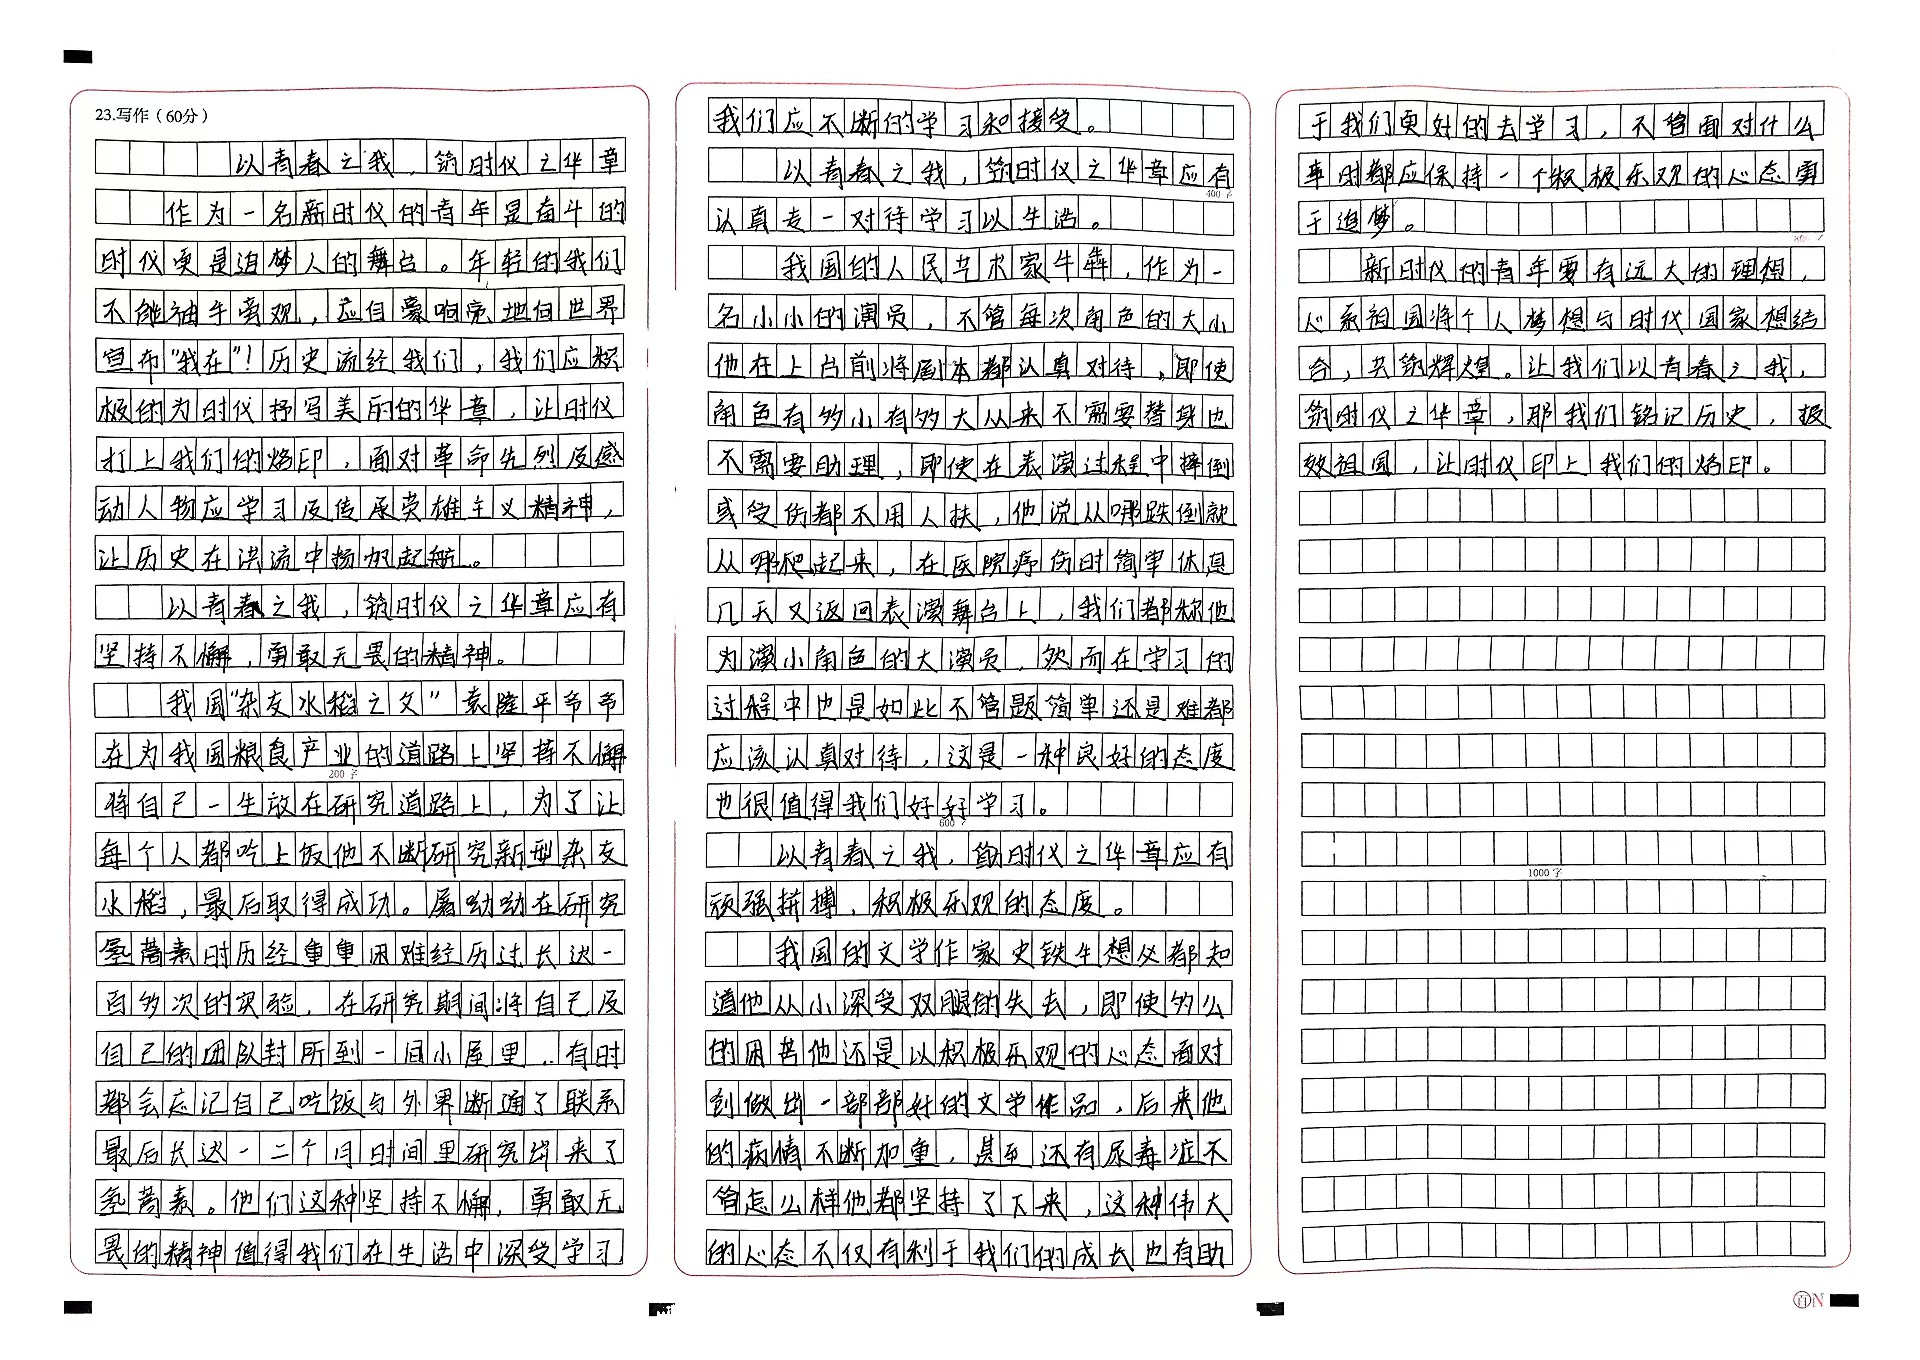 23.写作（60分）
以青春之我，筑时代之华章
作为一名新时代的青年是奋斗的
时代更是追梦人的舞台。年轻的我们
不能袖手旁观，应自豪响亮地向世界
宣布“我在”！历史流经我们，我们应积
极的为时代抒写美丽的华章，让时代
打上我们的烙印，面对革命先列及感
动人物应学习及传承英雄主义精神，
让历史在洪流中扬帆起航。
以青春之我，筑时代之华章应有
坚持不懈，勇敢无畏的精神。
我国“杂友水稻之父”袁隆平爷爷
在为我国粮食产业的道路上坚持不懈
200 字
将自己一生放在研究道路上，为了让
每个人都吃上饭他不断研究新型杂友
水稻，最后取得成功。屠呦呦在研究
氢蒿素时历经重重困难经历过长达一
百多次的实验，在研究期间将自己及
自己的团队封所到一间小屋里，有时
都会忘记自己吃饭与外界断通了联系
最后长达一二个月时间里研究出来了
氢蒿素。他们这种坚持不懈，勇敢无
畏的精神值得我们在生活中深受学习，
我们应不断的学习和接受。
以青春之我，筑时代之华章应有
400 字
认真走一对待学习以生活。
我国的人民艺术家牛犇，作为一
名小小的演员，不管每次角色的大小
他在上台前将剧本都认真对待，即使
角色有多小有多大从来不需要替身也
不需要助理，即使在表演过程中摔倒
或受伤都不用人扶，他说从哪跌倒就
从哪爬起来，在医院疗伤时简单休息
几天又返回表演舞台上，我们都称他
为演小角色的大演员，然而在学习的
过程中也是如此不管题简单还是难都
应该认真对待，这是一种良好的态度
也很值得我们好好学习。
600 字
以青春之我，筑时代之华章应有
顽强拼搏，积极乐观的态度。
我国的文学作家史铁生想必都知
道他从小深受双腿的失去，即使多么
的困苦他还是以积极乐观的心态面对
创做出一部部好的文学作品，后来他
的病情不断加重，甚至还有尿毒症不
管怎么样他都坚持了下来，这种伟大
的心态不仅有利于我们的成长也有助
于我们更好的去学习，不管面对什么
事时都应保持一个积极乐观的心态勇
于追梦。
800 字
新时代的青年要有远大的理想，
心系祖国将个人梦想与时代国家想结
合，共筑辉煌。让我们以青春之我，
筑时代之华章，那我们铭记历史，报
效祖国，让时代印上我们的烙印。
1000 字
百N